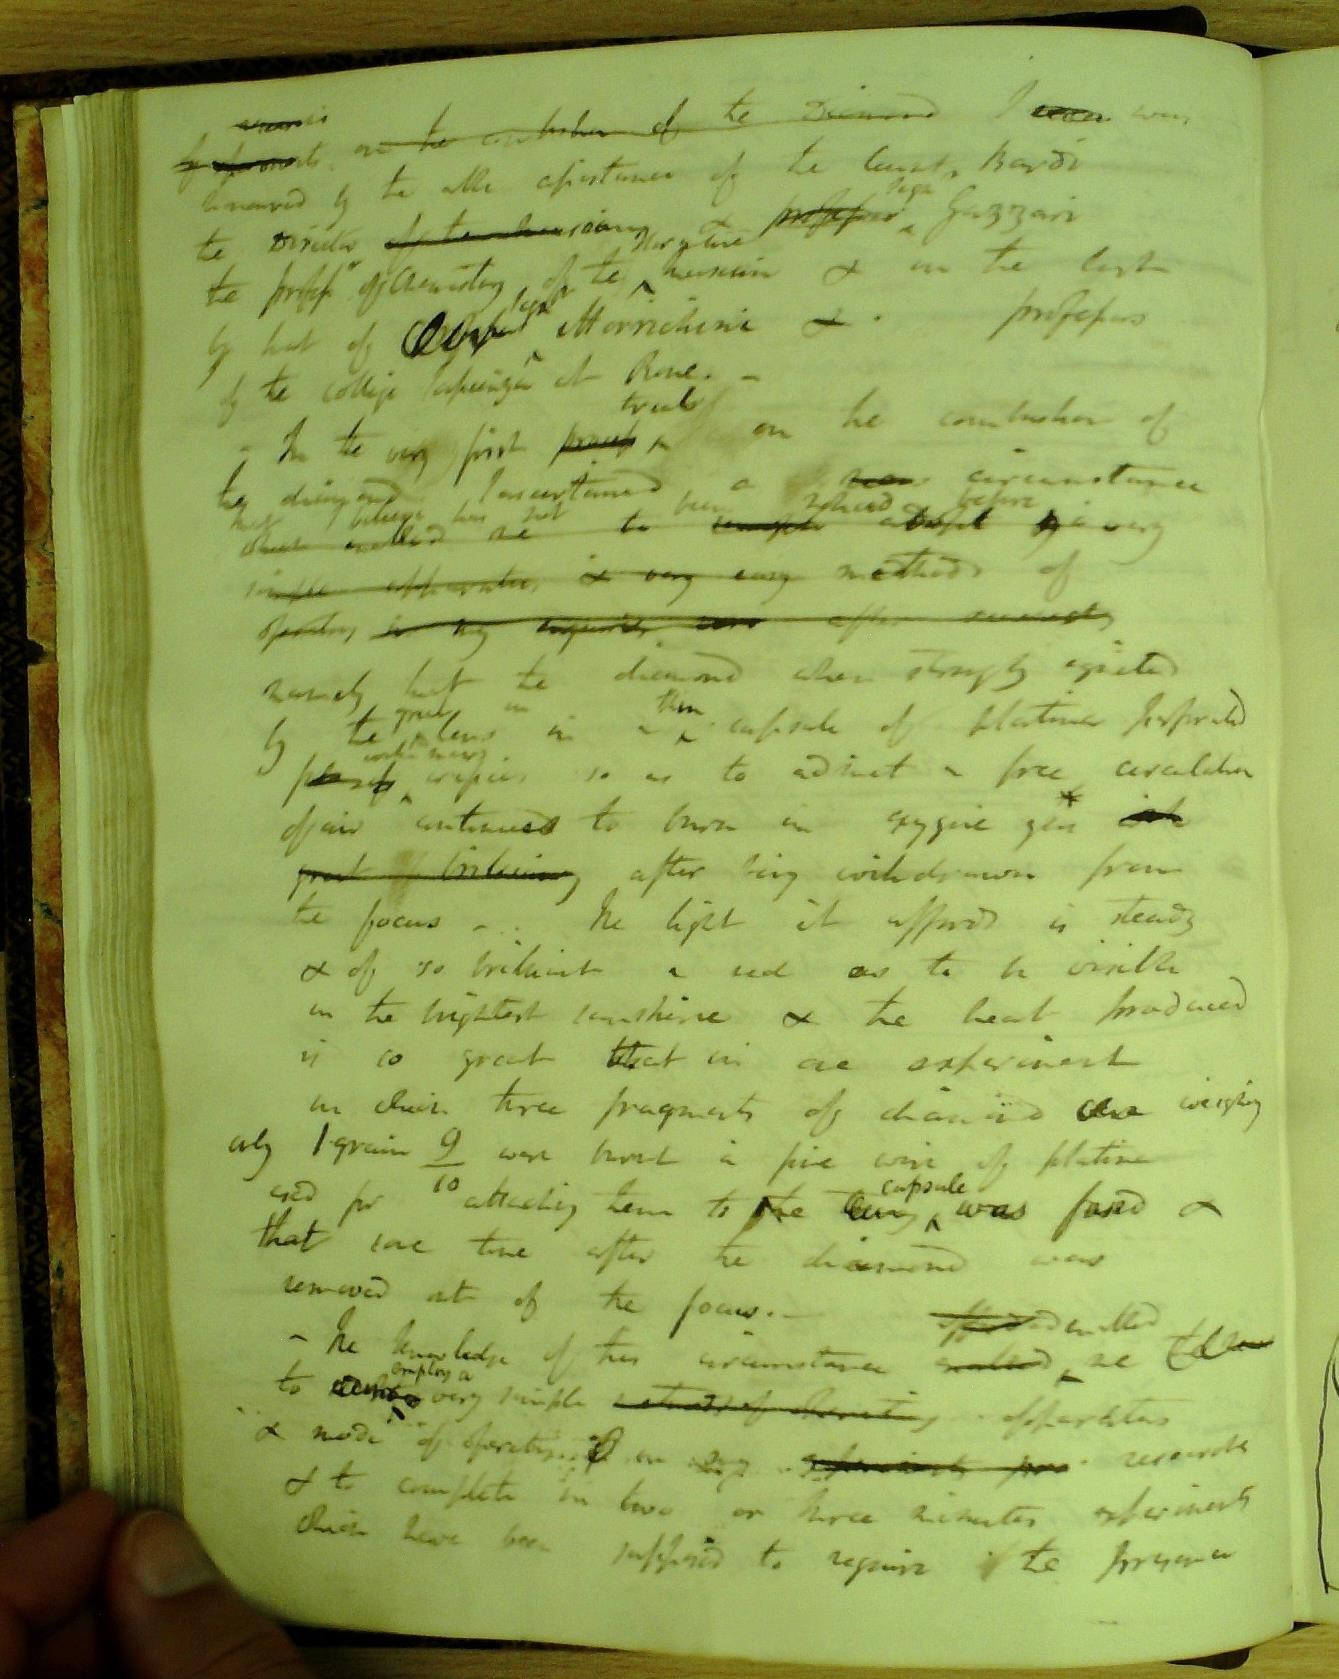 on the combustion of the Diamond I was
honoured by the able assistance of the Count Bardi
the Director & professor Sigr Gazzari
the profr of Chemistry of the Florentine Museum & in the last
by that of Sigr Morrichini & professors
of the college Sapienza at Rome. -
- In the very first process trials on the combustion of
the diamond I ascertained a new circumstance
that I believe has not been noticed before
which enabled me to adopt a very
simple apparatus & very easy methods of
operating in my enquiries
namely that the diamond when strongly ignited
by the great lens in a thin capsule of platina perforated
with many orifices so as to admit a free circulation
of air continued to burn in oxygene gas * with
great brilliancy after being withdrawn from
the focus - The light it affords is steady
& of so brilliant a red as to be visible
in the brightest sunshine & the heat produced
is so great that in one experiment
in which three fragments of diamond weighing
only 1 grain 9/10 were burnt a fine wire of platina
used for attaching them to the tray capsule was fused &
that some time after the diamond was
removed out of the focus. -
- The knowledge of this circumstance enabled me
to employ a very simple methods of operating apparatus
& mode of operation in my experiments researches
& to complete in two or three minutes experiments
which have been supposed to require the presence